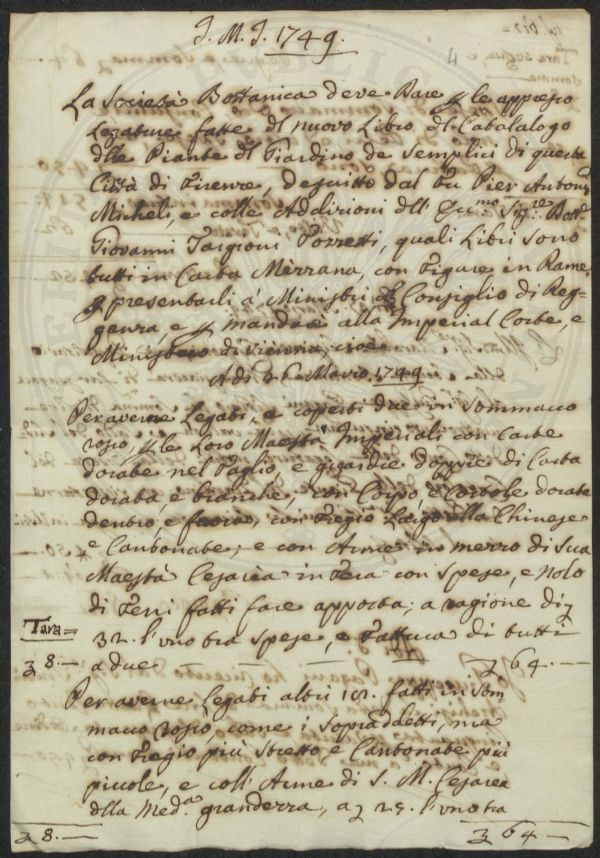 J. M. J. 1749.
4
La Società Bottanica deve Dare p le appresso
Legature fatte dl nuovo Libro dl Catalalogo
dlle Piante dl Giardino de Semplici di questa
Città di Firenze, descritto dal fu Pier Antonio
Micheli, e colle Addizioni dll' Ecc:mo Sig:re Dott:
Giovanni Targioni Tozzetti, quali Libri sono
tutti in Carta Mezzana, con Figure in Rame
p presentarli a' Ministri dl Consiglio di Reg-
genza, e p mandare alla Imperial Corte, e
Ministero di Vienna cioè
Adi 6 Marzo 1749
Per averne Legati, e coperti due in Sommacco
rosso, p le Loro Maestà Imperiali con Carte
dorate nel Taglio, e guardie doppie di Carta
dorata, e bianche, con Corpo, e Cartole dorate
dentro, e fuori, con Fregio Largo alla Chinese
e Cantonate; e con Arme in mezzo di Sua
Maestà Cesarea intera con spese, e nolo
di Ferri fatti fare apposta; a ragione di z
32. l'uno tra spese, e Fattura di tutti
Tara=
z 8.— a due — — — z 64.—
Per averne Legati altri fatti in Som
macco rosso, come i Sopraddetti, ma
con Fregio più stretto, e Cantonate più
piccole, e coll' Arme di S. M. Cesarea
dlla Med:a grandezza, a z 25. l'uno tra
z 8.— z 64—